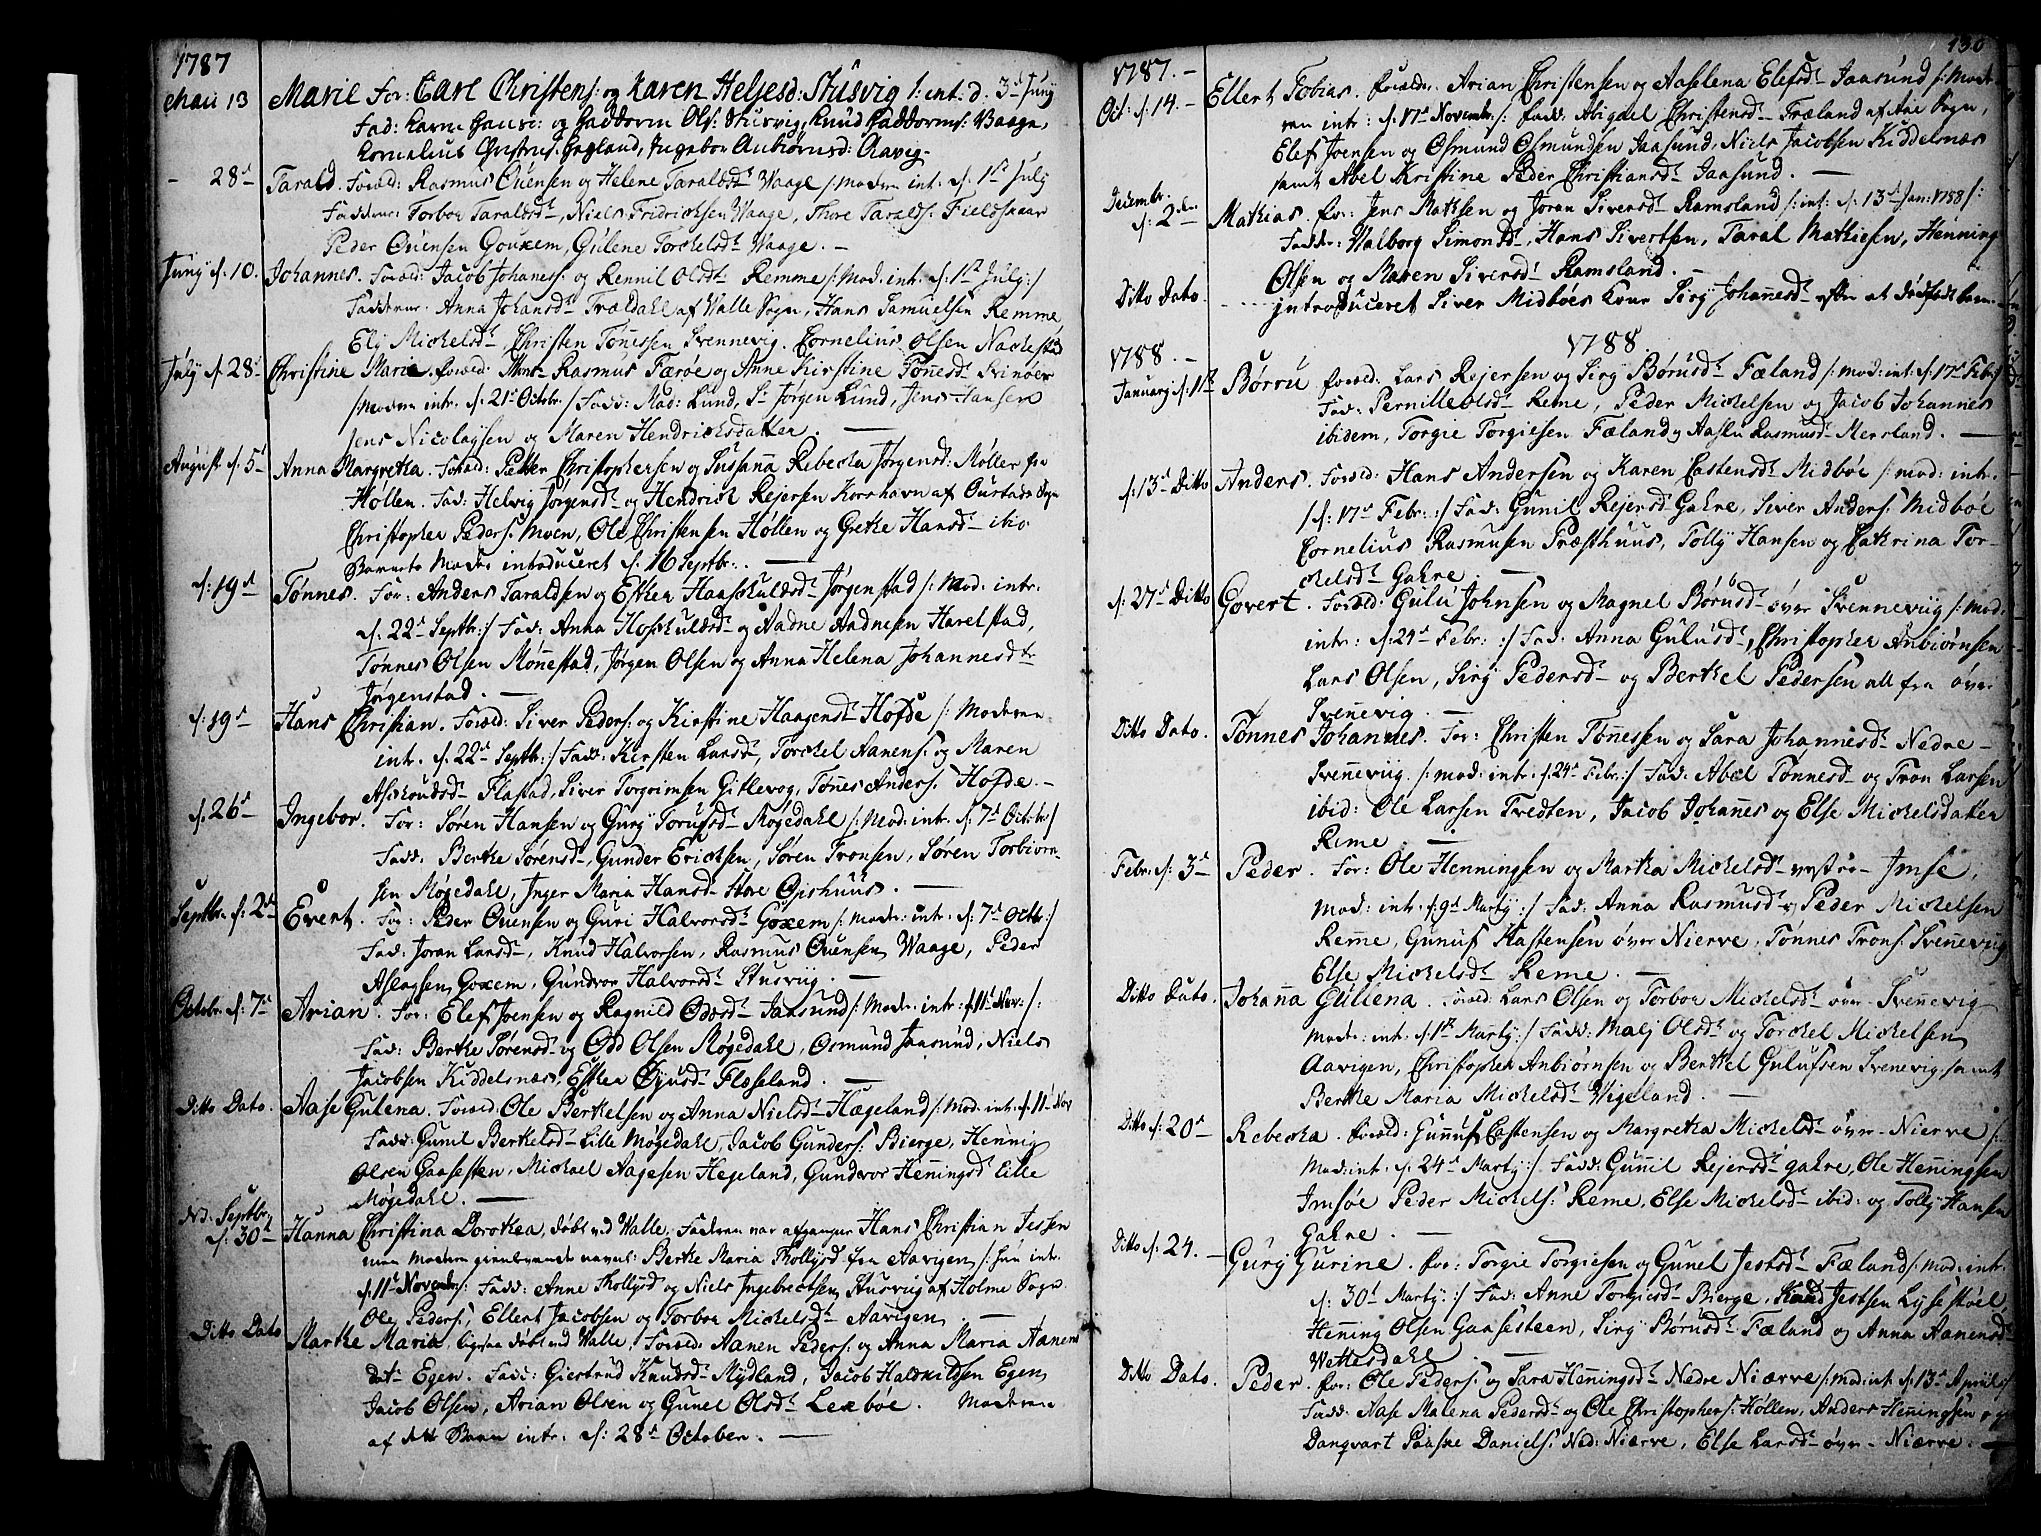 1787
Maii 13 Marie For: Carl Christens: og Karen Heljesd: Stusvig /: int: d. 3d Junÿ
Fad: Karen Hansd: og Gudtorm Ols: Stusvig, Knud Guddorms: Vaage,
Kornelius Christens: Hægland, Ingebor Anbiørnsd: Aavig.
- 28d Tarald. Foræld: Rasmus Ouensen og Helene Taraldsdr Waage /: Moder int: d. 1ste Julÿ
Fadderne: Torbor Taraldsdr, Niels Fridrichsen Waage, Thore Taralds: Fieldsgaar
Peder Ouensen Gouxem, Gulene Torchelsdr Waage. —
Junÿ d. 10. Johannes. Foræld: Jacob Johanes: og Rennil Olsdr Remme /: Mod: int: d. 1ste Julÿ :/
Fadderne: Anna Johansdr Trældahl af Walle Sogn, Hans Samuelsen Remme,
Eli Michelsdr, Christen Tönessen Svennevig. Cornelius Olsen Nachestad
Julÿ d. 28d Christine Marie. foræld: Monsr Rasmus Færøe og Anne Kirstine Tönesdr Svinöer
/Modren intr: d. 21d Octobr:/ Fadd: Mad: Lund, Sr Jørgen Lund, Jens Hansen
Jens Nicolaÿsen og Maren Hendrichsdatter. —
August d. 5d Anna Margretha. Foræld: Petter Christophersen og Susanna Rebecka Jørgensd: Möller fra
Høllen. Fad: Helvig Jørgensdr og Hendrich Rejersen Korshavn af Oustads Sogn
Christopher Peders: Moen, Ole Christensen Høllen og Grethe Hansdr ibid
Barnets Moder introduceret d. 16 Septbr: —
d: 19d Tønnes. For: Anders Taraldsen og Esther Haaskuldsdr Jörgenstad /: Mod: intr:
d: 22d Septbr:/ Fad: Anna Hoskuldsdr og Aadne Aadnesen Harestad,
Tønnes Olsen Mönestad, Jørgen Olsen og Anna Helena Johannesdr
Jørgenstad. —
d: 19d Hans Christian. Foræld: Siver Peders: og Kirstine Haagensdr Hofde /: Moderen
intr. d. 22d Septbr:/ Fadd: Kirsten Larsdr, Torchel Aanens: og Maren
Aschoudsdr Flastad, Siver Torgrimsen Gitlevog, Tönes Anders: Hofde. —
d. 26d Ingebor. For: Søren Hansen og Gurÿ Torufsdr Møgedahl /: Mod: intr. d. 7d Octobr/
Fadd: Berthe Sørensdr, Gunder Erichsen, Søren Tronsen, Søren Torbiørn-
sen Møgedahl, Inger Maria Hansdr Store Opshuus. —
Septbr: d. 2d Evert. For: Peder Ouensen og Guri Halvorsdr Goxem /: Moder: intr. d. 7d Octbr:/
Fad: Joran Larsdr, Knud Halvorsen, Rasmus Ouensen Waage, Peder
Aslagsen Goxem, Gundvor Halvorsdr Stusvig. —
Octobr: d. 7d Arian. For: Elef Joensen og Ragnild Odsdr Jaasund /: Moder: intr: d 11d Nov: /:
Fad: Berthe Sørensdr og Odd Olsen Møgedahl, Osmund Jaasund, Niels
Jacobsen Kiddelsnæs, Esther Øyusdr Fleseland. —
Ditto Dato. Aase Gulena. Foræld: Ole Berthelsen og Anna Nielsdr Hægeland /: Mod: int: d. 11d Nov
Fadd: Gunil Berthelsdr Lille Møgedahl, Jacob Gunders: Bierge, Hennig
Olsen Gaasesten, Michael Aagesen Hegeland, Gundvor Henningsdr Lille
Møgedahl. —
Nd: Septbr: d: 30d Hanna Christina Dorothea, døbt ved Walle, Faderen var afgangne Hans Christian Jessen
men Moderens navn: Berthe Maria Thollÿsdr fra Aavigen /: hun int:
d. 11d November:/ Fadd: Anne Thollÿsd og Niels Ingebrectsen Stusvig af Holme Sogn
Ole Peders:, Ellert Jacobsen og Torbor Michelsdr Aavigen. —
Ditto Dato Marthe Maria, ligesaa døbt ved Walle, Foræld: Aanen Peders: og Anna Maria Aanens
dat: Egen. Fadd: Giertrud Knudsdr Mydland, Jacob Haldsteldsen Egen,
Jacob Olsen, Arian Olsen og Gunel Olsdr Lexböe. Moderen
af dette Barn intr: d: 28d October. —
130
1787. —
Oct: d. 14. — Ellert Tobias. Foræld: Arian Christensen og Aaselena Elefsdr Jaasund /: Mode-
ren intr: d. 17d Novembr:/: fadd: Abigael Christensdr Træland af Aae Sogn,
Elef Joensen og Osmund Osmundsen Jaasund, Niels Jacobsen Kiddelsnæs
samt Abel Kristine Peder Christiansdr Jaasund. —
Decembr: d: 2den Mathias. For: Jens Mathsen og Joran Siversdr Ramsland /: int: d. 13d Jan: 1788 /:
Fadd: Walborg Simonsdr, Hans Sivertsen, Taral Mathiesen, Henning
Olsen og Maren Siversdr Ramsland. —
Ditto Dato. introduceret Siver Midböes Kone Siri Johanesdr efter et dødfødt barn.
1788.
1788. —
Januarj d. 1ste Børru foræld: Lars Rejersen og Siri Børusdr Fæland /: mod: int: d. 17d Feb:/
Fad: Pernille Olsdr Reme, Peder Michelsen og Jacob Johannes
ibidem, Torgie Torgiesen Fæland og Aaslu Rasmusdr Mersland. —
d: 13d Ditto Anders. Foræld: Hans Andersen og Karen Castensdr Midböe /: mod: intr:
/d: 17d Febr: :/ Fad: Gunil Rejersdr Gahre, Siver Anders: Midböe
Cornelius Rasmusen Præsthuus, Tollÿ Hansen og Cathrina Tor-
chelsdr Gahre. —
d. 27d Ditto Govert. Foræld: Gulu Johnsen og Magnel Børusdr over Svenneviig /: mod:
intr: d. 24d Febr: :/ Fad: Anna Gulusdr, Christopher Anbiörnsen
Lars Olsen, Siri Pedersdr og Berthel Pedersen all fra over
Svenevig. —
Ditto Dato. Tønnes Johannes. For: Christen Tönessen og Sara Johannesdr Nedre-
Svenneviig. /: mod: intr. d. 24d Febr:/ Fad: Abel Tønnesdr og Tron Larsen
ibid: Ole Larsen Tvedten, Jacob Johannes og Else Michelsdatter
Reme. —
Febr: d: 3d Peder. For: Ole Henningsen og Martha Michelsdr vestre Imse,
Mod: intr. d: 9d Martÿ :/ Fad: Anna Rasmusd og Peder Michelsen
Reme, Gunuf Kastensen over Nierve, Tønnes Trons: Svenneviig
Else Michelsdr Reme. —
Ditto Dato. Johanna Gullena. Foræld: Lars Olsen og Torbor Michelsdr over Svennevig
Moder: int: d. 1ste Martÿ :/ Fadd: Malj Olsdr og Torchel Michelsen
Aavigen, Christopher Anbiørnsen og Berthel Gulufsen Svenevig, samt
Berthe Maria Michelsdr Wigeland. —
Ditto d: 20d Rebecka. foræld: Gunnuf Castensen og Margretha Michelsdr over Nierve /:
Mod: int: d. 24d Martÿ :/ Fadd: Gunnil Rejersdr Gahre, Ole Henningsen
Imsöe Peder Michels: Reme, Else Michelsdr ibid: og Tollÿ Hansen
Gahre. —
Ditto d: 24. — Gurÿ Gurine. For: Torgie Torgiesen og Gunel Jestsdr Fæland /: mod: intr:
d: 30d Martÿ :/ Fad: Anne Torgiesdr Bierge, Knud Jestsen Lysestöel,
Henning Olsen Gaasesteen, Siri Børusdr Fæland og Anna Aanensdr
Wettesdahl. —
Ditto Dato. Peder. for: Ole Peders: og Sara Henningsdr Nedre Niærve /: mod: int d. 13d April :/
Fadd: Aase Malena Pedersdr og Ole Christophers: Høllen, Anders Henningsen og
Danqvart Paaske Daniels: Ned: Niærve, Else Larsdr over Niærve. —